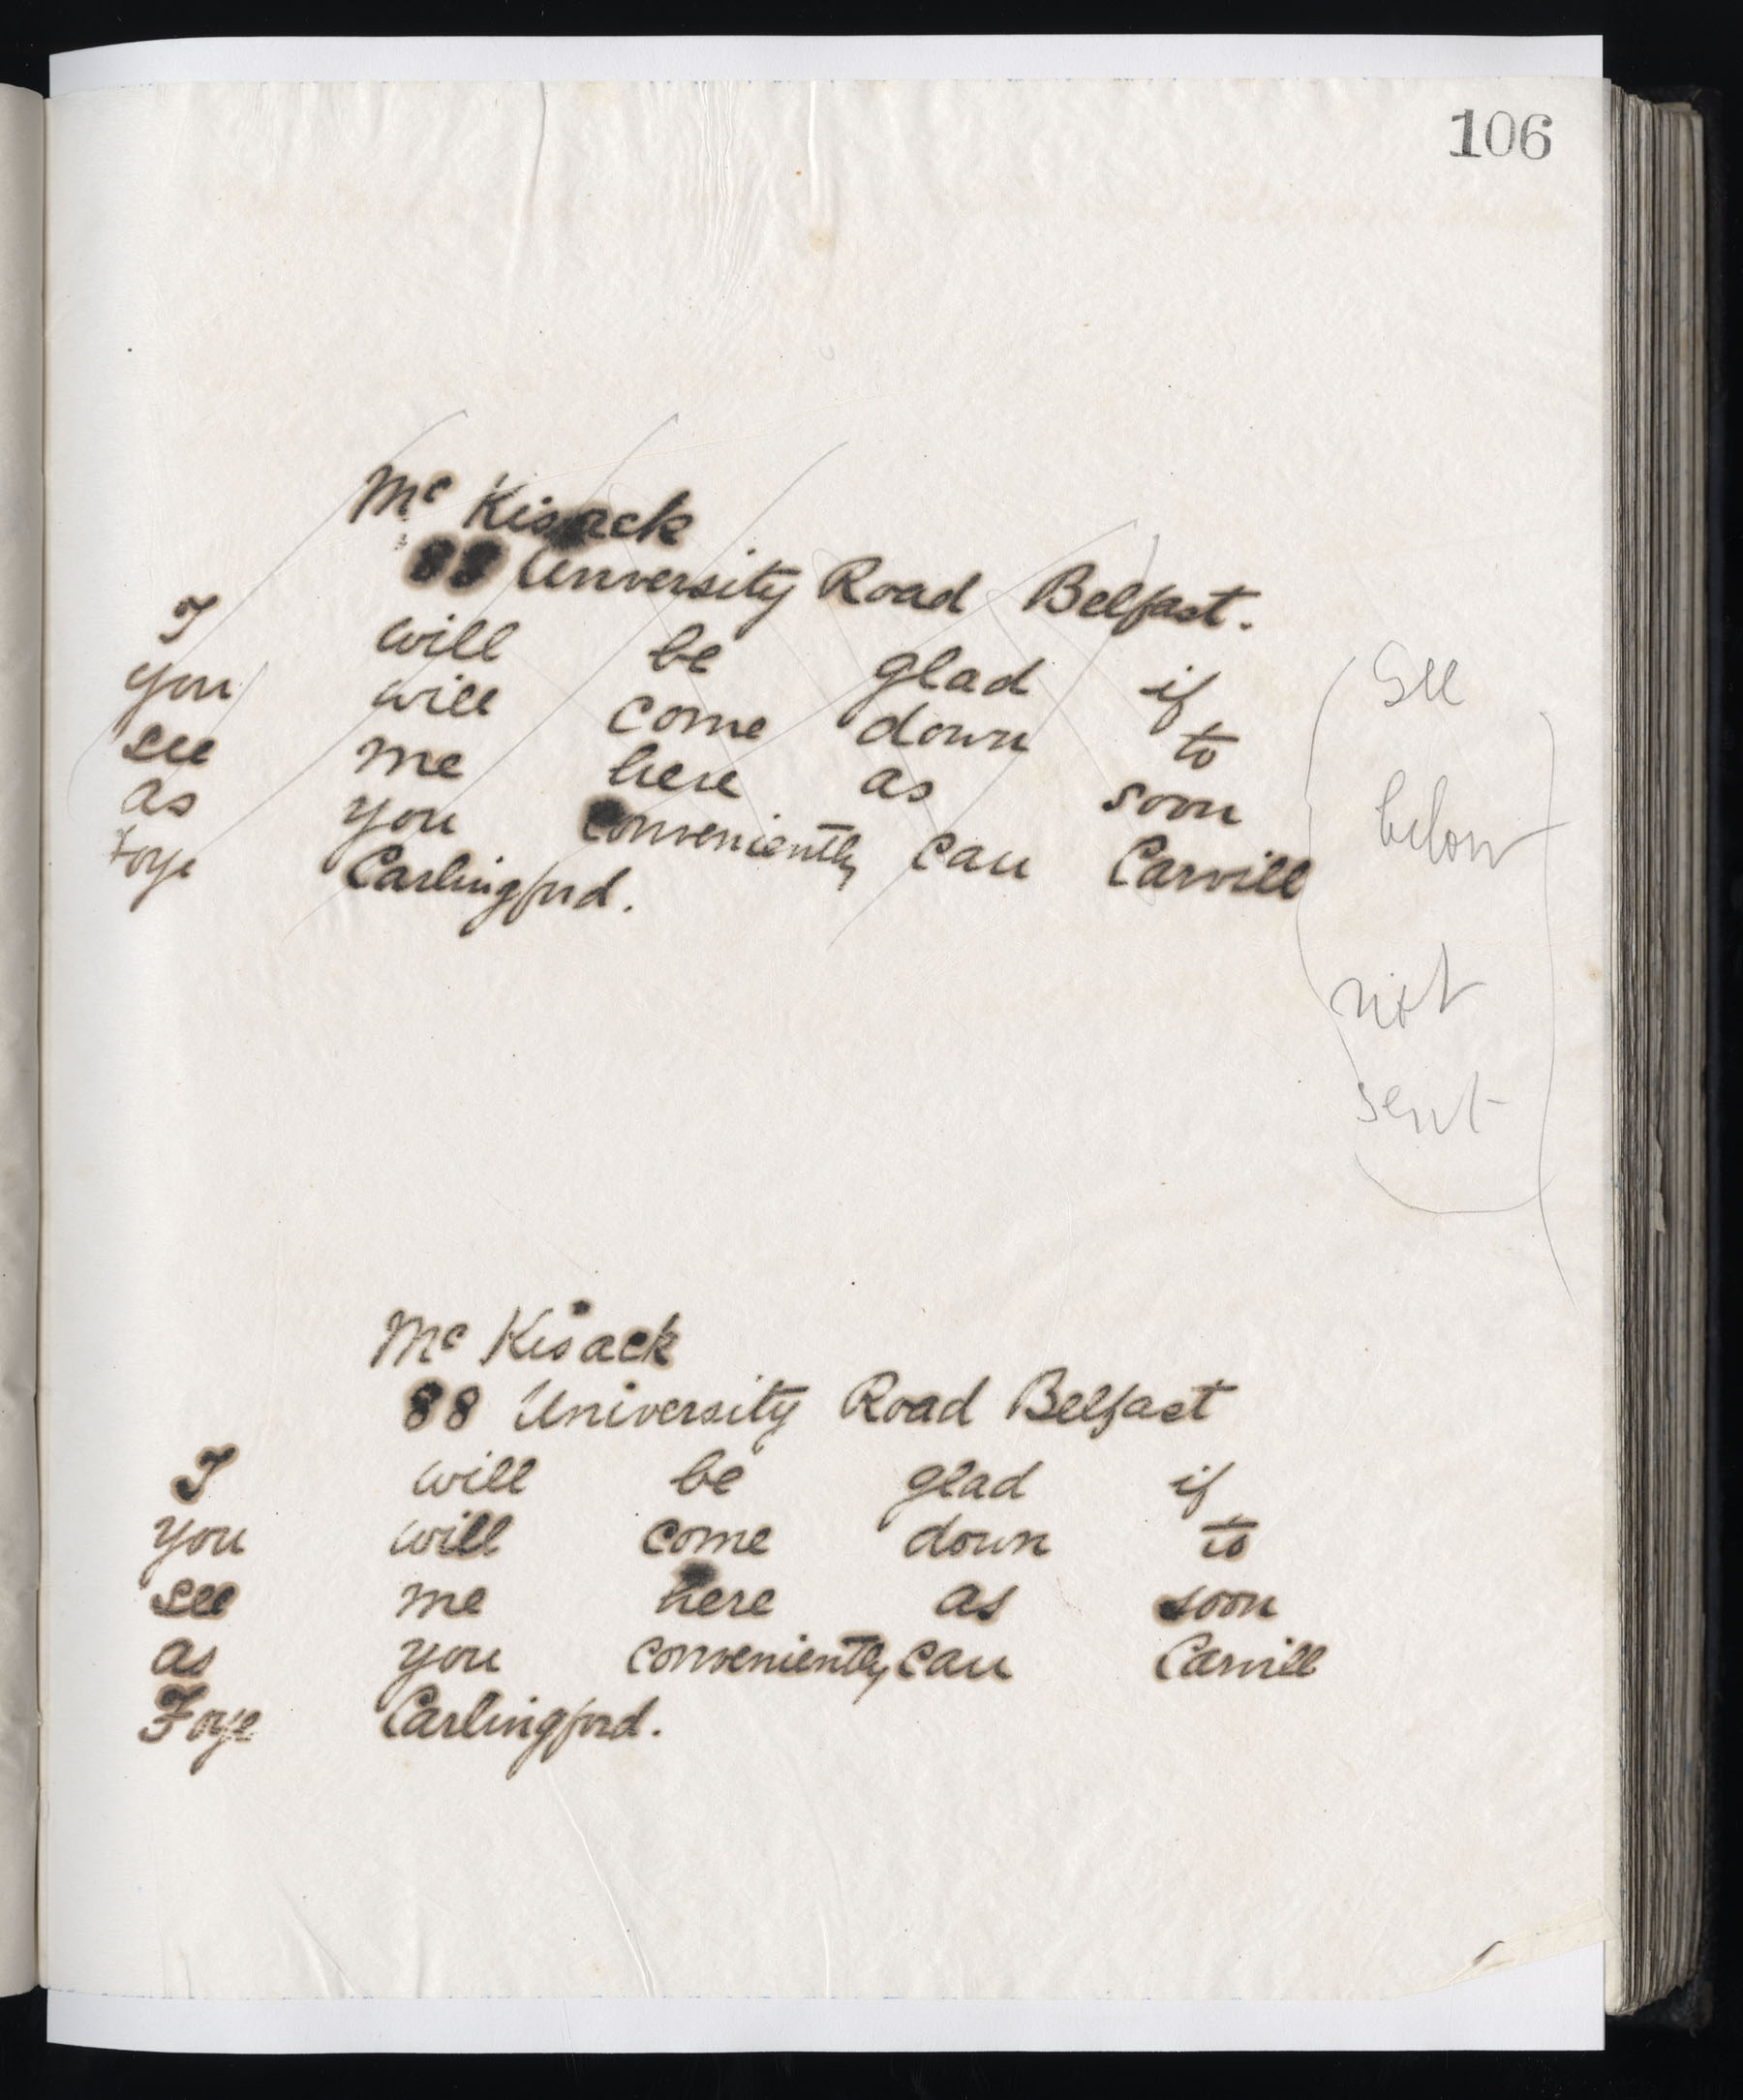 106
Mc Kisack
88 University Road Belfast.
I will be glad if
you will come down to
see me here as soon
as you conveniently can Carvill
Foye Carlingford.
See
below
not
sent
Mc Kisack
88 University Road Belfast
I will be glad if
you will come down to
see me here as soon
as you conveniently can Carvill
Foye Carlingford.